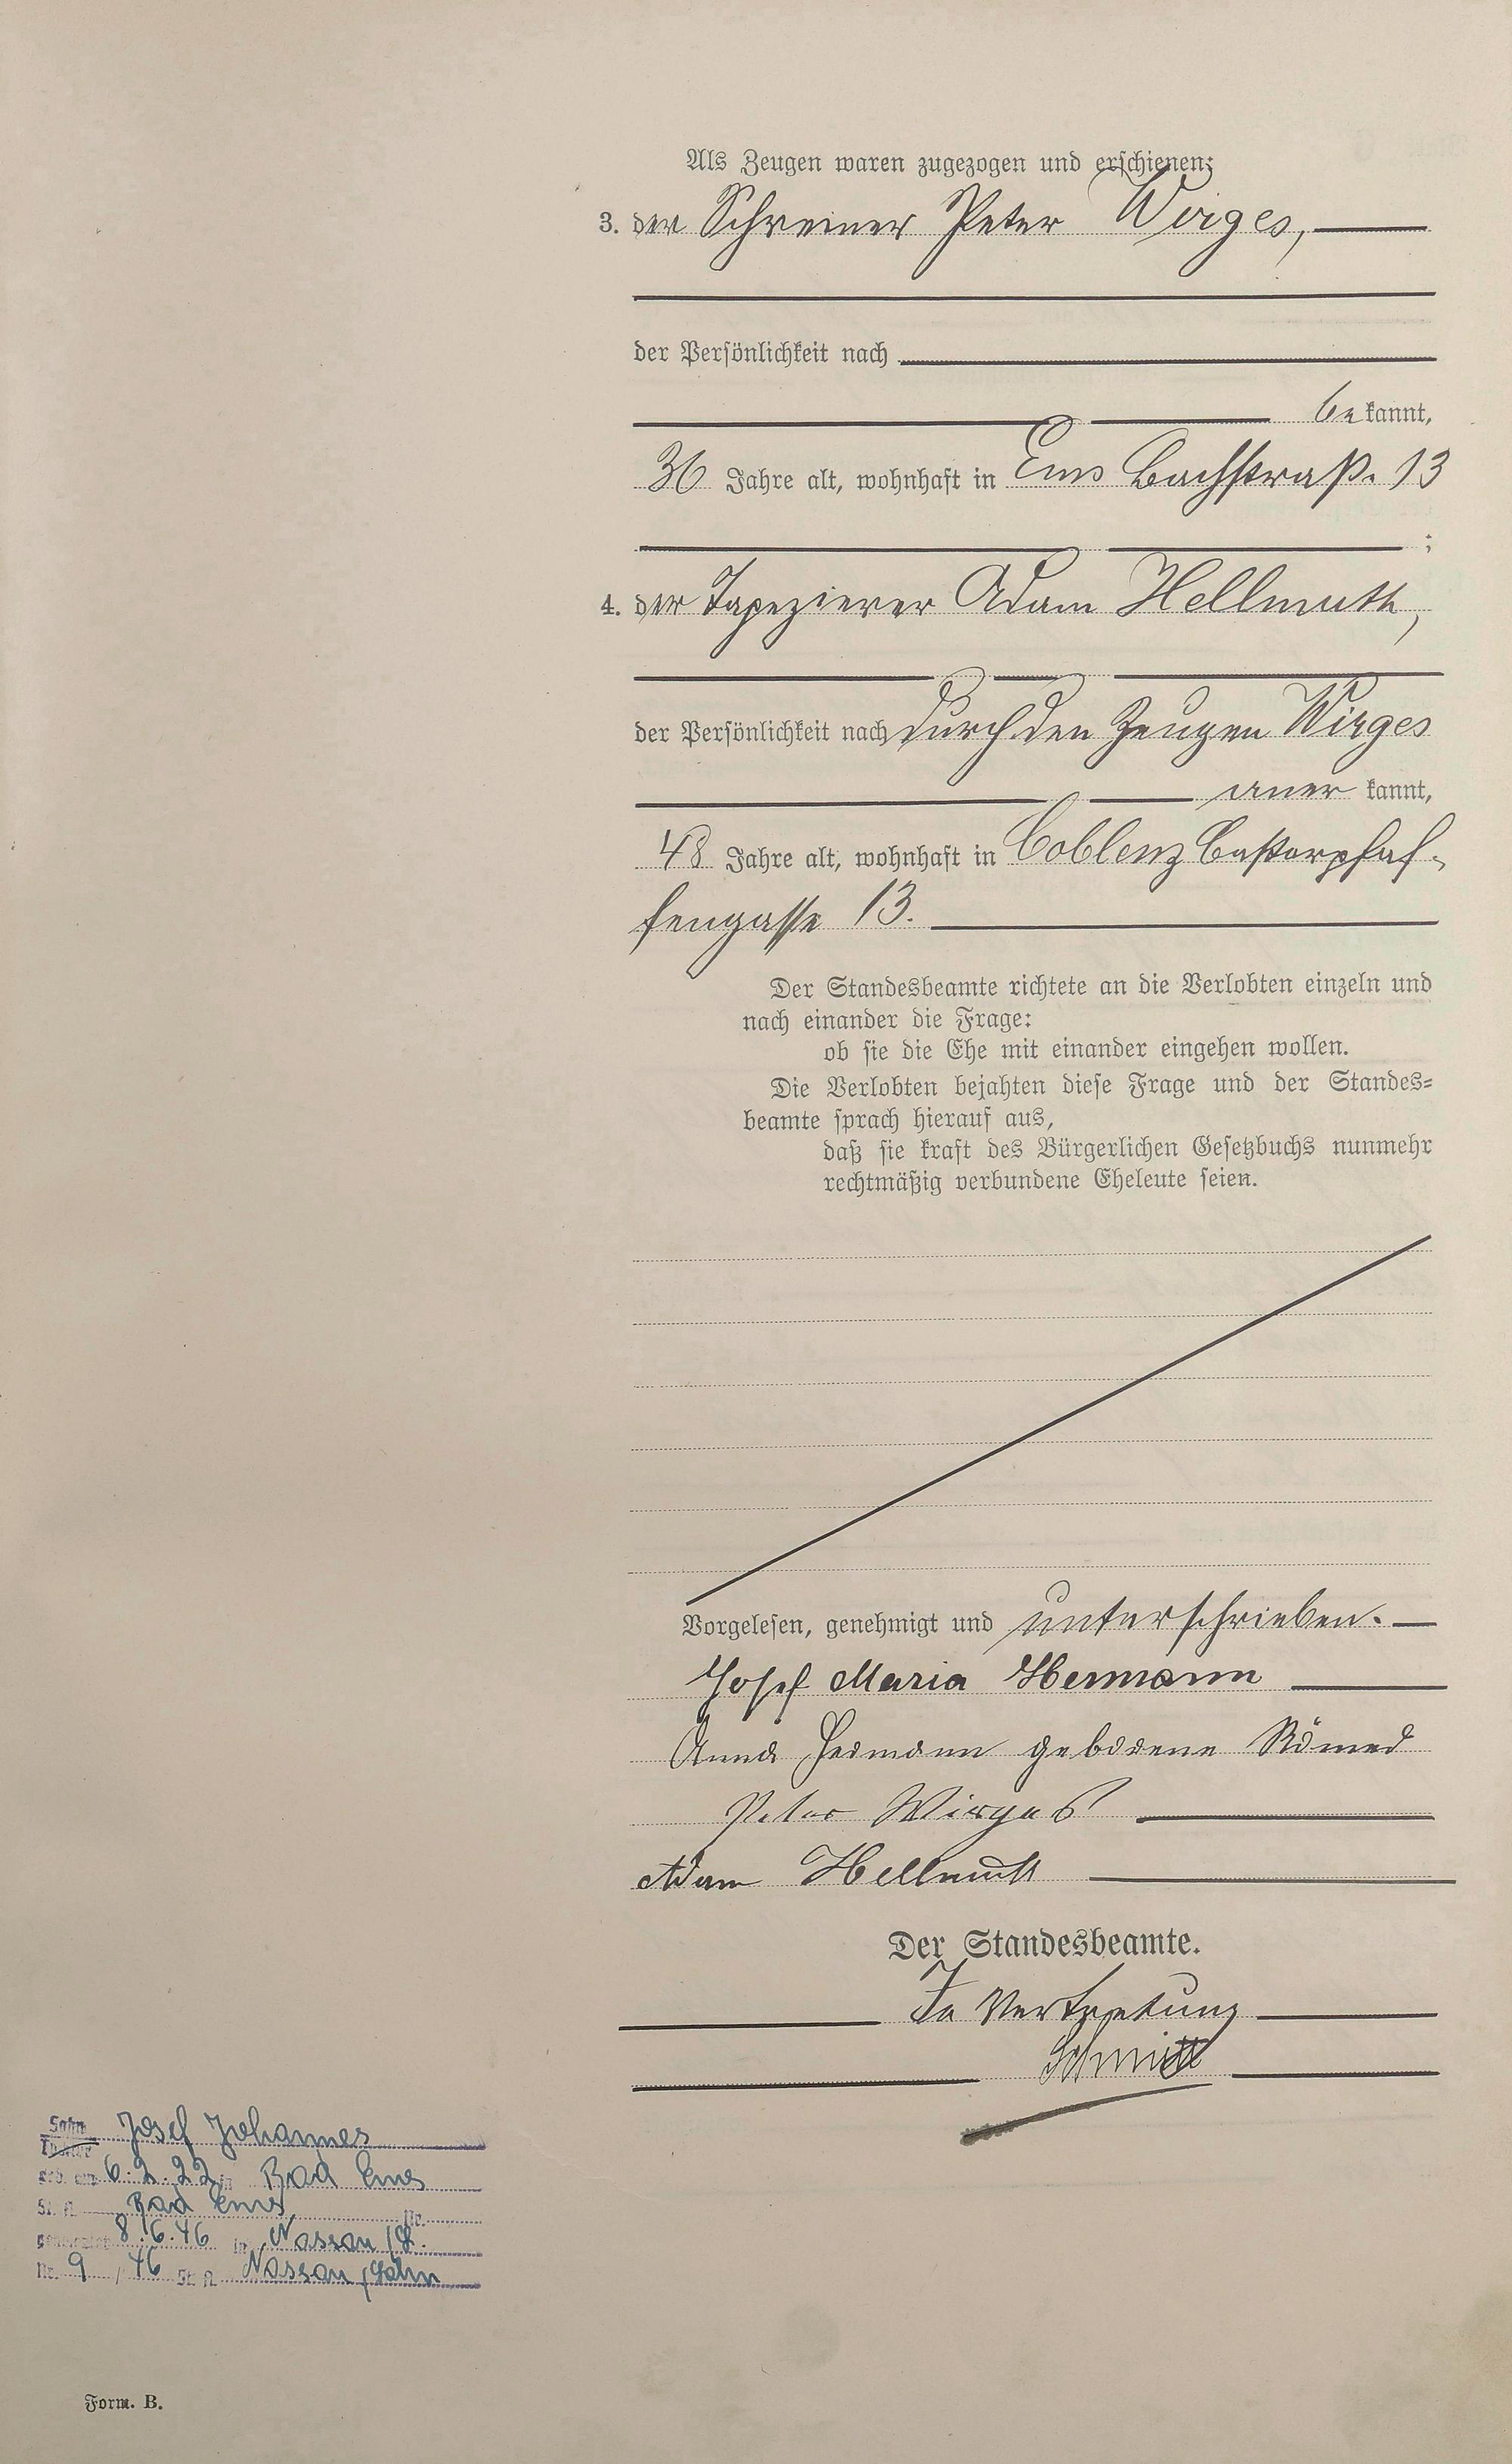 Als Zeugen waren zugezogen und erschienen:
3. der Schreiner Peter Wirges,
der Persönlichkeit nach
be kannt,
36 Jahre alt, wohnhaft in Ems Bachstraße 13
;
4. der Tapezierer Adam Hellmuth,
der Persönlichkeit nach durch den Zeugen Wirges
aner kannt,
48 Jahre alt, wohnhaft in Coblenz Castorpfaf-
fengasse 13.
Der Standesbeamte richtete an die Verlobten einzeln und
nach einander die Frage:
ob sie die Ehe mit einander eingehen wollen.
Die Verlobten bejahten diese Frage und der Standes-
beamte sprach hierauf aus,
daß sie kraft des Bürgerlichen Gesetzbuchs nunmehr
rechtmäßig verbundene Eheleute seien.
Vorgelesen, genehmigt und unterschrieben.
Josef Maria Hermann
Anna Hermann geborene
Peter Wirges
Adam Hellmuth
Der Standesbeamte.
In Vertretung
Schmitt
Sohn
Tochter Josef Johannes
geb. am 6.2.22 in Bad Ems
St. A. Bad Ems Nr.
geheiratet 8.6.46 in Nassau/L.
Nr. 9 / 46 St. A. Nassau/Lahn
Form. B.